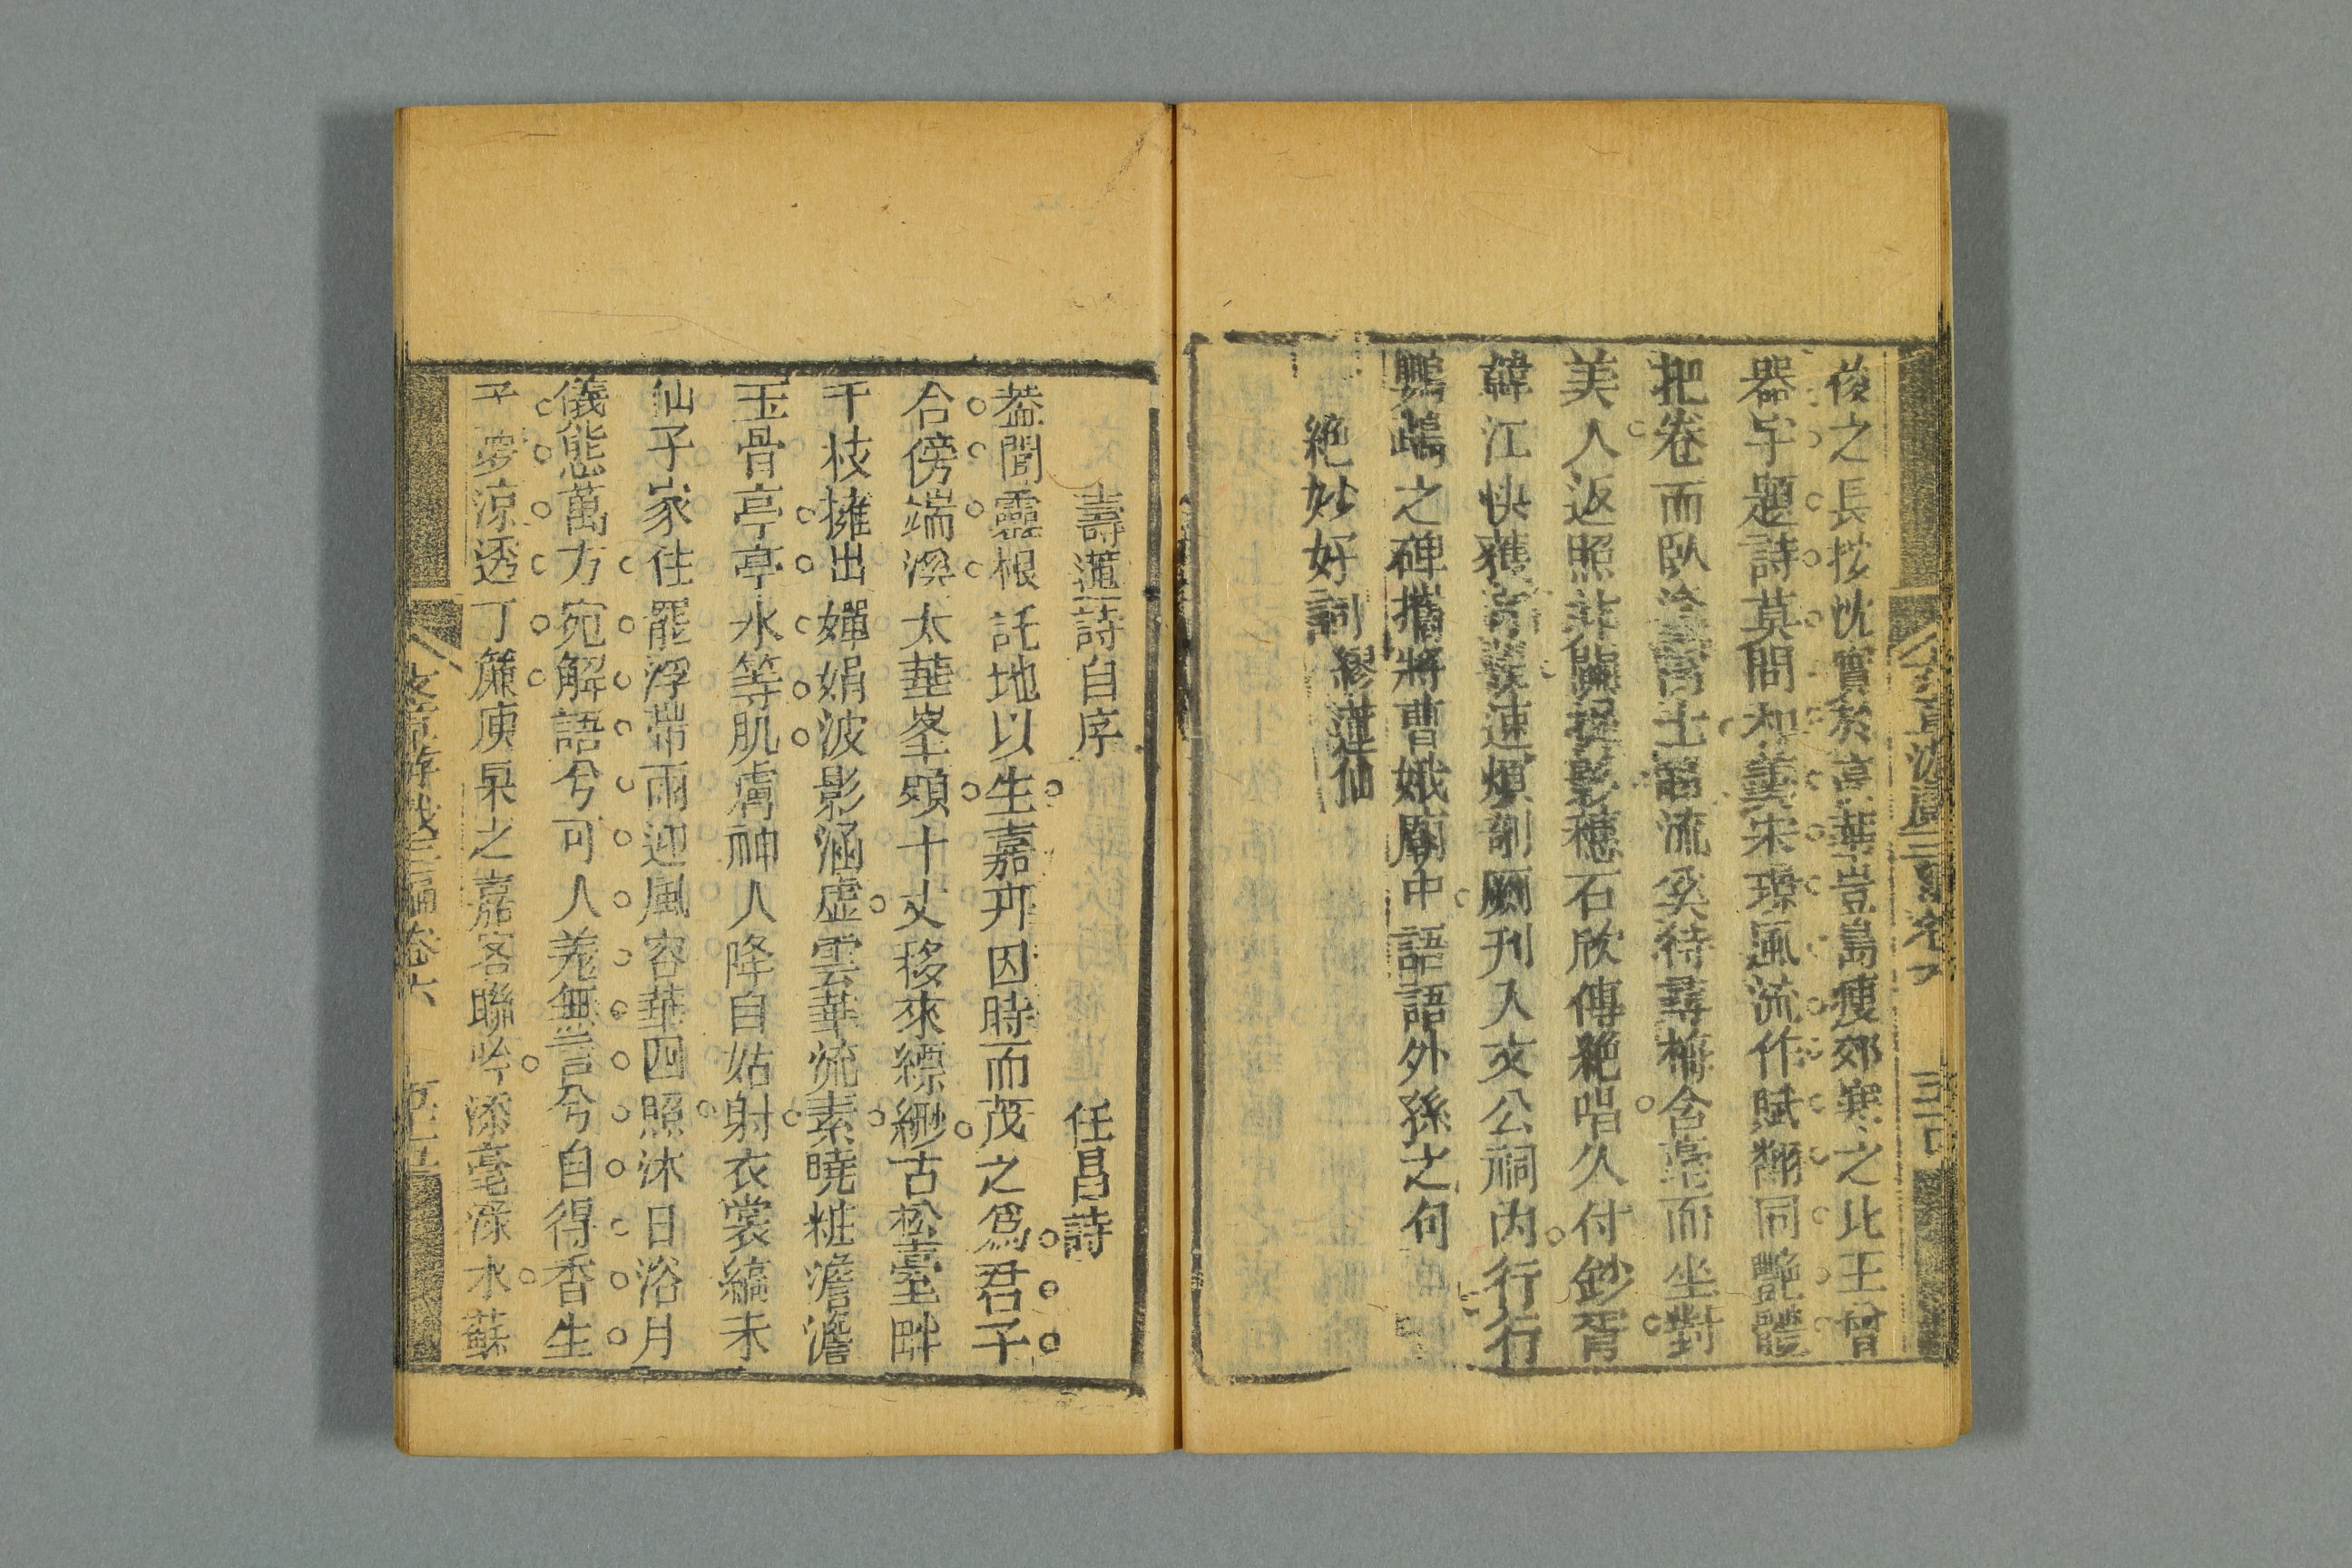 後之長技忱實於京華豈島瘦郊寒之比王曾
器宇題詩莫問和羹宋璟風流作賦翻同艷體
把卷而臥涂高士流奚待尋梅含毫而坐對
美人返照影穗石欣傳絶唱久付鈔胥
韓江快獲速煩剞劂刊入文公祠内行行
鸚鵡之碑攜將曹娥廟中語語外孫之句
絶妙好詞 繆蓮仙
壽蓮詩自序 任昌詩
葢聞靈根託地以生嘉卉因時而茂之爲君子
合傍端溪太華峯頭十丈移來縹緲古松臺畔
千枝擁出嬋娟波影涵虚雲華流素曉粧澹澹
玉骨亭亭氷等肌膚神人降自姑射衣裳縞未
仙子家住罷浮帶雨迎風容華四照沐日浴月
儀態萬方宛解語兮可人羌無言兮自得香生
子夢涼透丁簾庾杲之嘉客聯吟添毫渌水蘇
文章游戲三編卷六